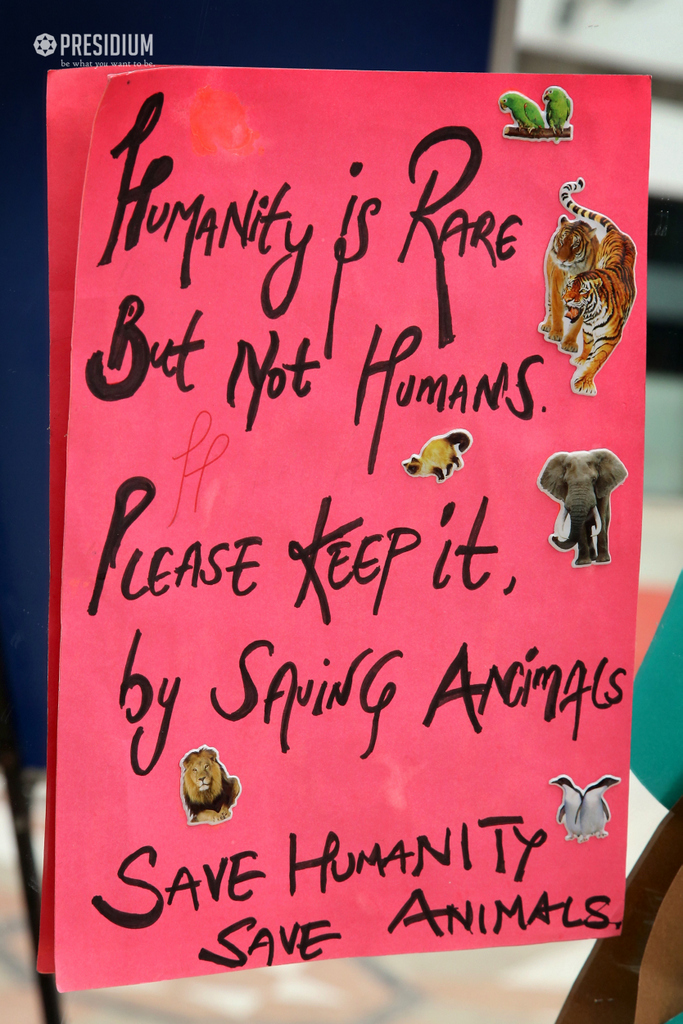 PRESIDIUM
be what you want to be.
Humanity is Rare
But Not Humans.
Please Keep it,
by Saving Animals
Save Humanity
Save Animals.